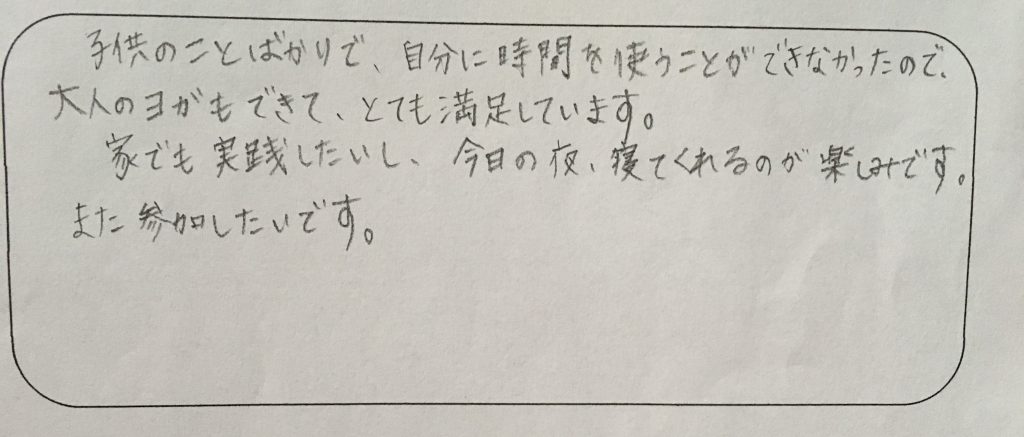 子供のことばかりで、自分に時間を使うことができなかったので、
大人のヨガもできて、とても満足しています。
家でも実践したいし、今日の夜、寝てくれるのが楽しみです。
また参加したいです。